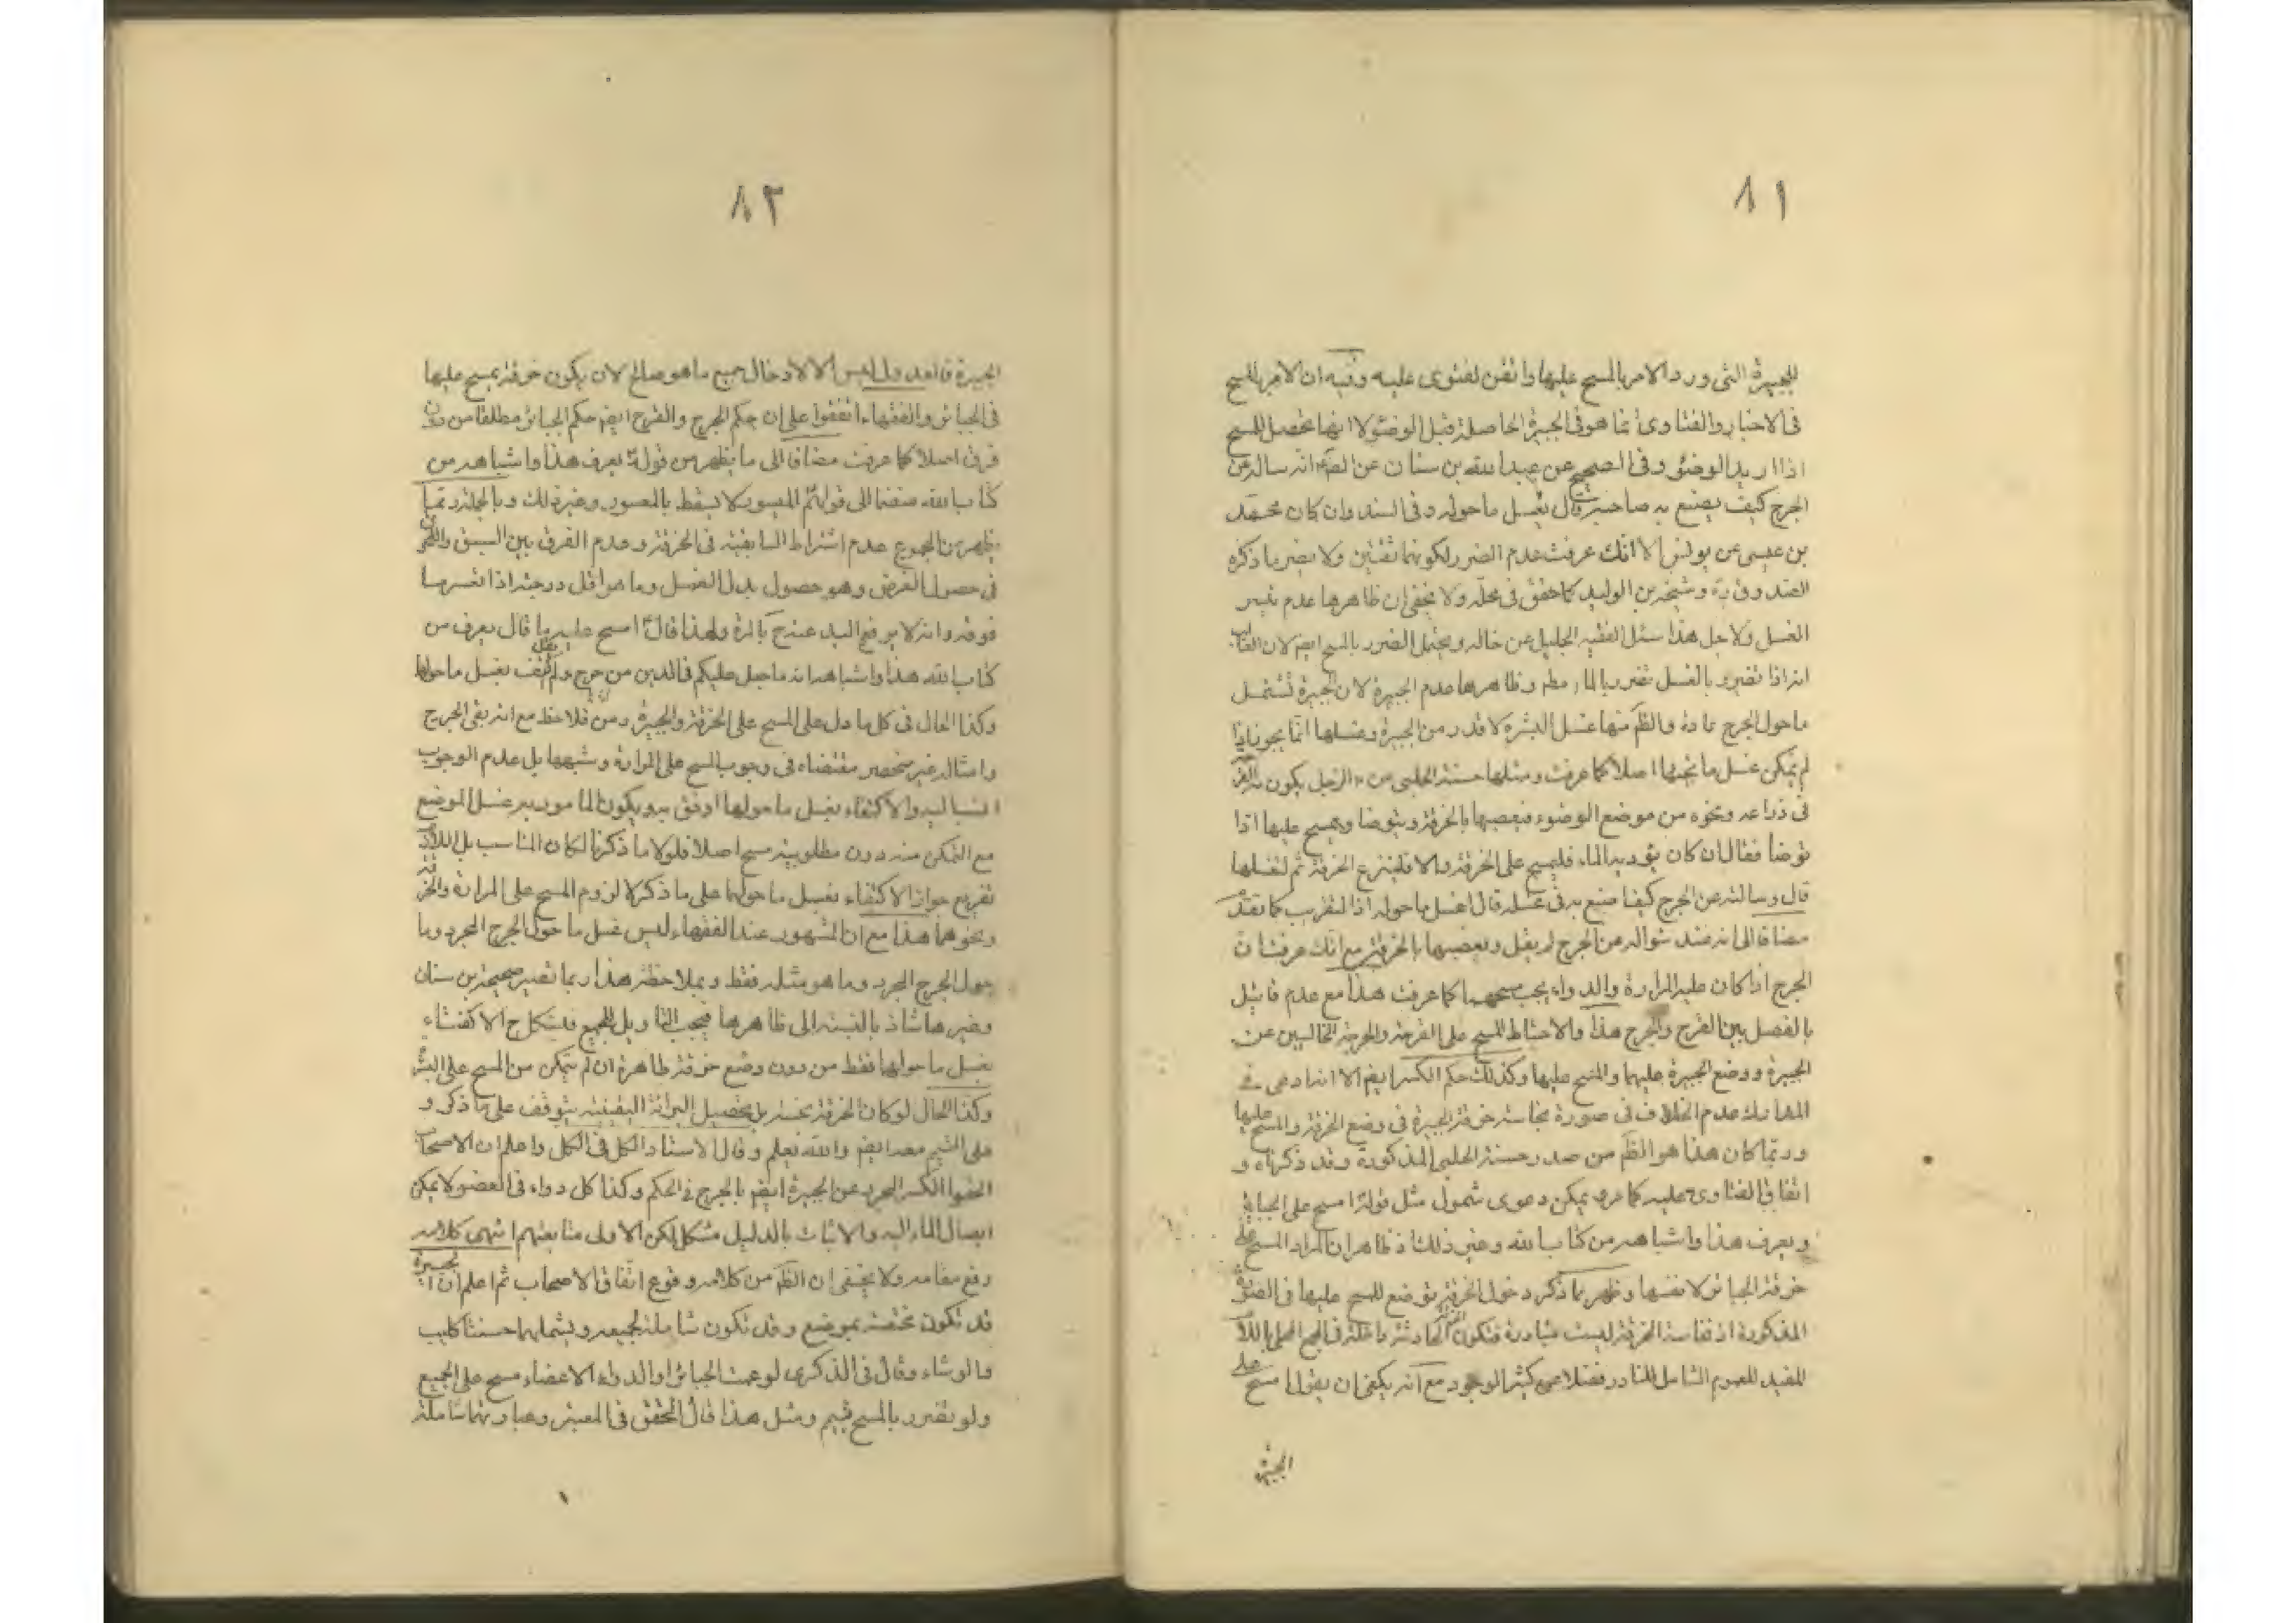 ٨١
للجبيرة التى ورد الامر بالمسح عليها واتفق لفتوى عليه وفيه ان الامر بالمسح
فى الاخبار والفتاوى انما هو فى الجبيرة الحاصلة قبل الوضوء لا انها تحصل للمسح
اذا اريد الوضوء وفى الصحيح عن عبد الله بن سنان عن الصّ انه ساله عن
الجرح كيف يصنع به صاحبه قال يغسل ما حوله وفى السند وان كان محمد
بن عيسى عن يونس الا انّك عرفت عدم الضرر لكونهما ثقتين ولا يضر ما ذكره
الصدوق ره وشيخه بن الوليد كما حقق فى محله ولا يخفى ان ظاهرها عدم تيسر
الغسل ولاجل هذا سئل الفقيه الجليل عن حاله ويحتمل الضرر بالمسح ايضا لان الغالب
انه اذا تضرر بالغسل تضرر بالماء مطم وظاهرها عدم الجبيرة لان الجبيرة تشتمل
ما حول الجرح عادة والظّم منها غسل البشرة لا قدر من الجبيرة وغسلها انّما يجوز اذا
لم يمكن غسل ما تحتها اصلا كما عرفت ومثلها حسنة الحلبى عن الرجل يكون به القرحة
فى ذراعه ونحوه من موضع الوضوء فيعصبها بالخرقة ويتوضا ويمسح عليها اذا
توضا فقال ان كان يؤذيه الماء فليمسح على الخرقة والا فلينزع الخرقة ثم ليغسلها
قال وسالته عن الجرح كيف اصنع به فى غسله قال اغسل ما حوله اذ التقريب كما تقدّم
مضافا الى انه عند سؤاله عن الجرح لم يقل ويعصبها بالخرقة مع انّك عرفت ان
الجرح اذا كان عليه المرارة والدواء يجب مسحهما كما عرفت هذا مع عدم قائل
بالفصل بين القرح والجرح هذا والاحتياط المسح على القرحة والجرحة الخاليين عن
الجبيرة ووضع الجبيرة عليهما والمسح عليها وكذلك حكم الكسر ايضا الا انه ادعى فى
المدارك عدم الخلاف فى صورة نجاسة خرقة الجبيرة فى وضع الخرقة والمسح عليها
وربّما كان هذا هو الظّم من صدر حسنة الحلبى المذكورة وقد ذكرناه و
اتفاق الفتاوى عليه كما مر ويمكن دعوى شمول مثل قوله امسح على الجبائر
ويعرف هذا واشباهه من كتاب الله وغير ذلك اذ ظاهر ان المراد المسح على
خرقة الجبائر لا نفسها وظهر مما ذكر دخول الخرقة توضع للمسح عليها فى الصورة
المذكورة اذ نفاسة الخرقة ليست متبادرة فتكون الخرقة الحادثة داخلة فى الجمع المحلى باللام
المفيد للعموم الشامل للنادر فضلا عن كثير الوجود مع انه يكفى ان يقول امسح على
الجبيرة
٨٢
الجبيرة فالعدول ليس الا لادخال جميع ما هو صالح لان يكون خرقة يمسح عليها
فى الجبائر والفقهاء اتفقوا على ان حكم الجرح والقرح ايضا حكم الجبائر مطلقا من دون
فرق اصلا كما عرفت مضافا الى ما يظهر من قوله يعرف هذا واشباهه من
كتاب الله منضما الى قولهم الميسور لا يسقط بالمعسور وغير ذلك وبالجملة ربّما
يظهر من المجموع عدم اشتراط السابقية فى الخرقة وعدم الفرق بين السبق واللحوق
فى حصول الغرض وهو حصول بدل الغسل وما هو اقل درجة اذا تعسر ما
فوقه وانه لا يرفع اليد عنه ح بالمرة ولهذا قال امسح عليه ما قال يعرف من
كتاب الله هذا واشباهه انه ما جعل عليكم فى الدين من حرج ولم يقل يغسل ما حولها
وكذا الحال فى كل ما دل على المسح على الخرقة والجبيرة ومن فلاحظ مع انه بقى الجرح
وامثاله غير منحصر مقتضاه فى وجوب المسح على المرارة وشبهها بل عدم الوجوب
انسب اليه والاكتفاء بغسل ما حولها اوفق به ويكون المامور به غسل الموضع
مع التمكن منه دون مطلوبية مسح اصلا فلولا ما ذكرنا لكان المناسب بل اللازم
تفريع جواز الاكتفاء بغسل ما حولها على ما ذكر لا لزوم المسح على المرارة والخرقة
ونحوهما هذا مع ان المشهور عند الفقهاء ليس غسل ما حول الجرح المجرد وما
حول الجرح المجرد وما هو مثله فقط وبملاحظة هذا ربما تصير صحيحة بن سنان
وغيرها شاذ بالنسبة الى ظاهرها فيجب التاويل للجمع فيشكل ح الاكتفاء
بغسل ما حولها فقط من دون وضع خرقة طاهرة ان لم يتمكن من المسح على البشرة
وكذا الحال لو كان الخرقة نجسة بل تحصيل البرائة اليقينية يتوقف على ما ذكر و
على التيمم معه ايضا والله يعلم وقال الاستاد الكل فى الكل واعلم ان الاصحاب
الحقوا الكسر المجرد عن الجبيرة ايضا بالجرح فى الحكم وكذا كل دواء فى العضو لا يمكن
ايصال الماء اليه والاثبات بالدليل مشكل لكن الاولى متابعتهم انتهى كلامه
رفع مقامه ولا يخفى ان الظّم من كلامه وقوع اتفاق الاصحاب ثم اعلم ان الجبيرة
قد تكون مختصة بموضع وقد تكون شاملة لجميعه ويشملهما حسنتا كليب
والوشاء وقال فى الذكرى لو عمت الجبائر او الدواء الاعضاء مسح على الجميع
ولو تضرر بالمسح تيمم ومثل هذا قال المحقق فى المعتبر وعبارتهما شاملة